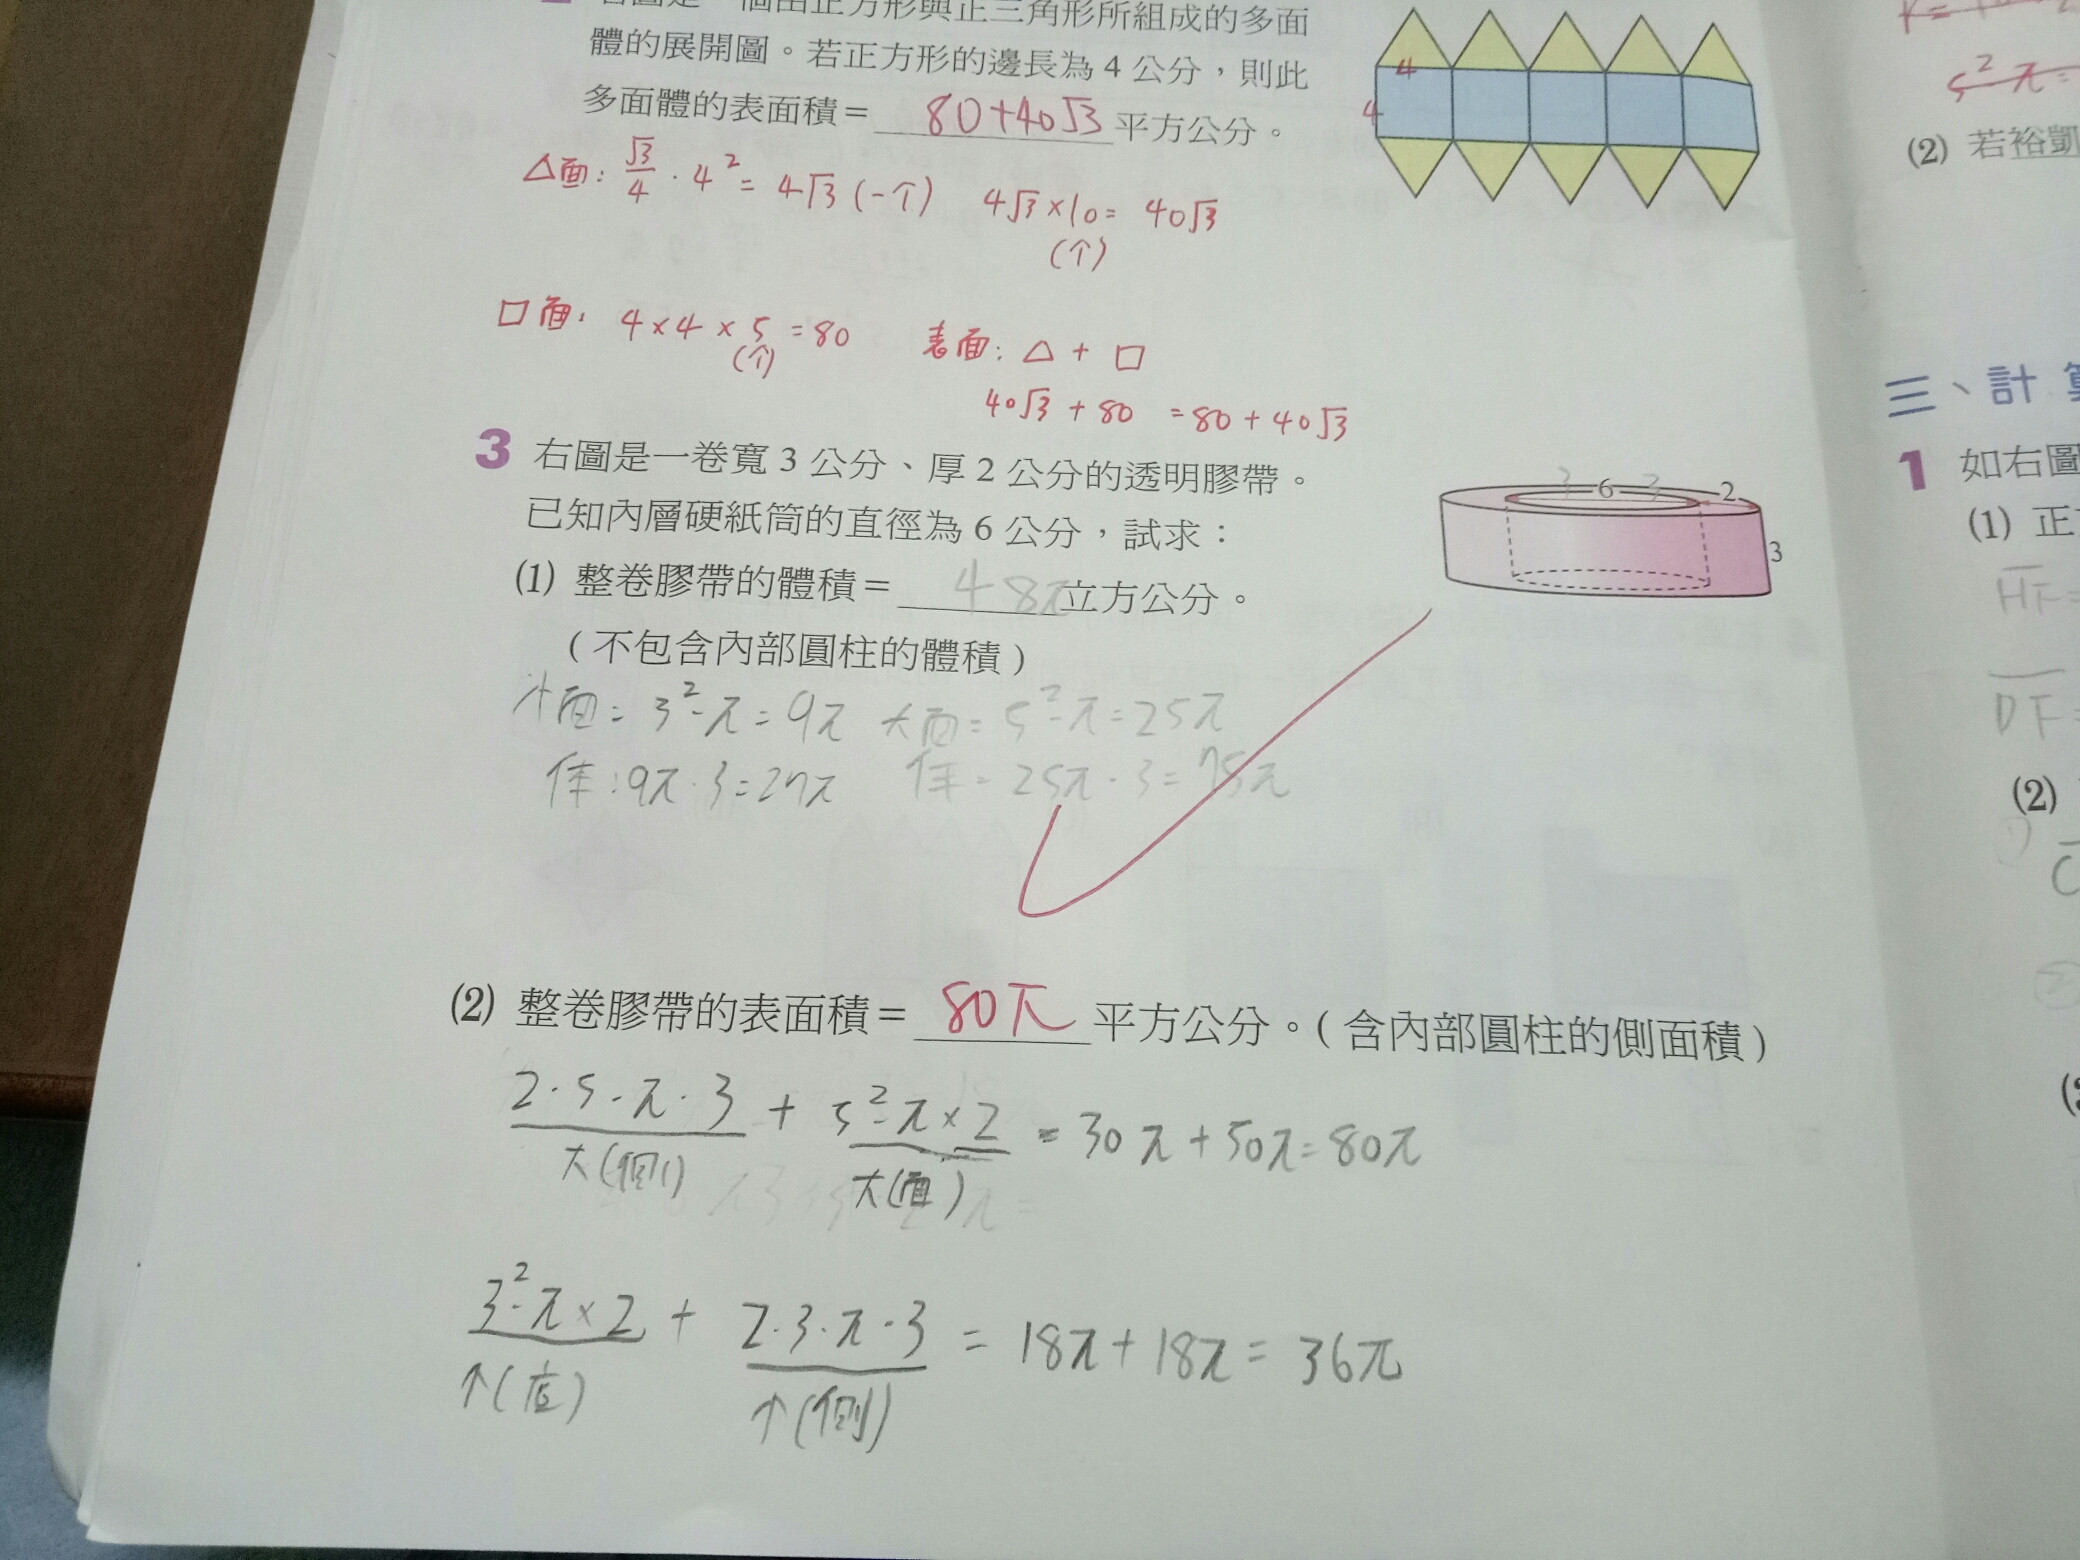 右圖是一個由正方形與正三角形所組成的多面
體的展開圖。若正方形的邊長為 4 公分,則此
多面體的表面積= 80+40√3 平方公分。
4
4
△面: √3/4 · 4² = 4√3 (一个) 4√3 × 10 = 40√3
(个)
口面: 4 × 4 × 5 = 80 表面: △ + 口
(个)
40√3 + 80 = 80 + 40√3
3 右圖是一卷寬 3 公分、厚 2 公分的透明膠帶。
已知內層硬紙筒的直徑為 6 公分,試求:
3 6 3 2
3
(1) 整卷膠帶的體積= 48π 立方公分。
(不包含內部圓柱的體積)
小面= 3²·π = 9π 大面= 5²·π = 25π
体: 9π · 3 = 27π 体= 25π · 3 = 75π
(2) 整卷膠帶的表面積= 80π 平方公分。(含內部圓柱的側面積)
2 · 5 · π · 3 + 5² · π × 2 = 30π + 50π = 80π
大(側) 大(面)
3² · π × 2 + 2 · 3 · π · 3 = 18π + 18π = 36π
小(底) 小(側)
(2) 若裕凱
三、計
1 如右圖
(1) 正
HF=
DF=
(2)